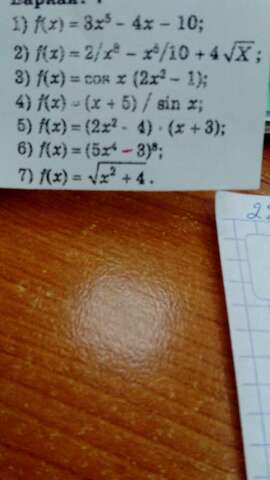 1) f(x) = 3x⁵ - 4x - 10;
2) f(x) = 2/x⁸ - x⁵/10 + 4√X;
3) f(x) = cos x (2x² - 1);
4) f(x) = (x + 5) / sin x;
5) f(x) = (2x² - 4) · (x + 3);
6) f(x) = (5x⁴ - 3)⁸;
7) f(x) = √x² + 4.